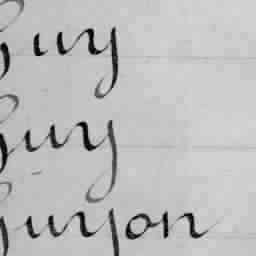 Guy
Guy
Guyon